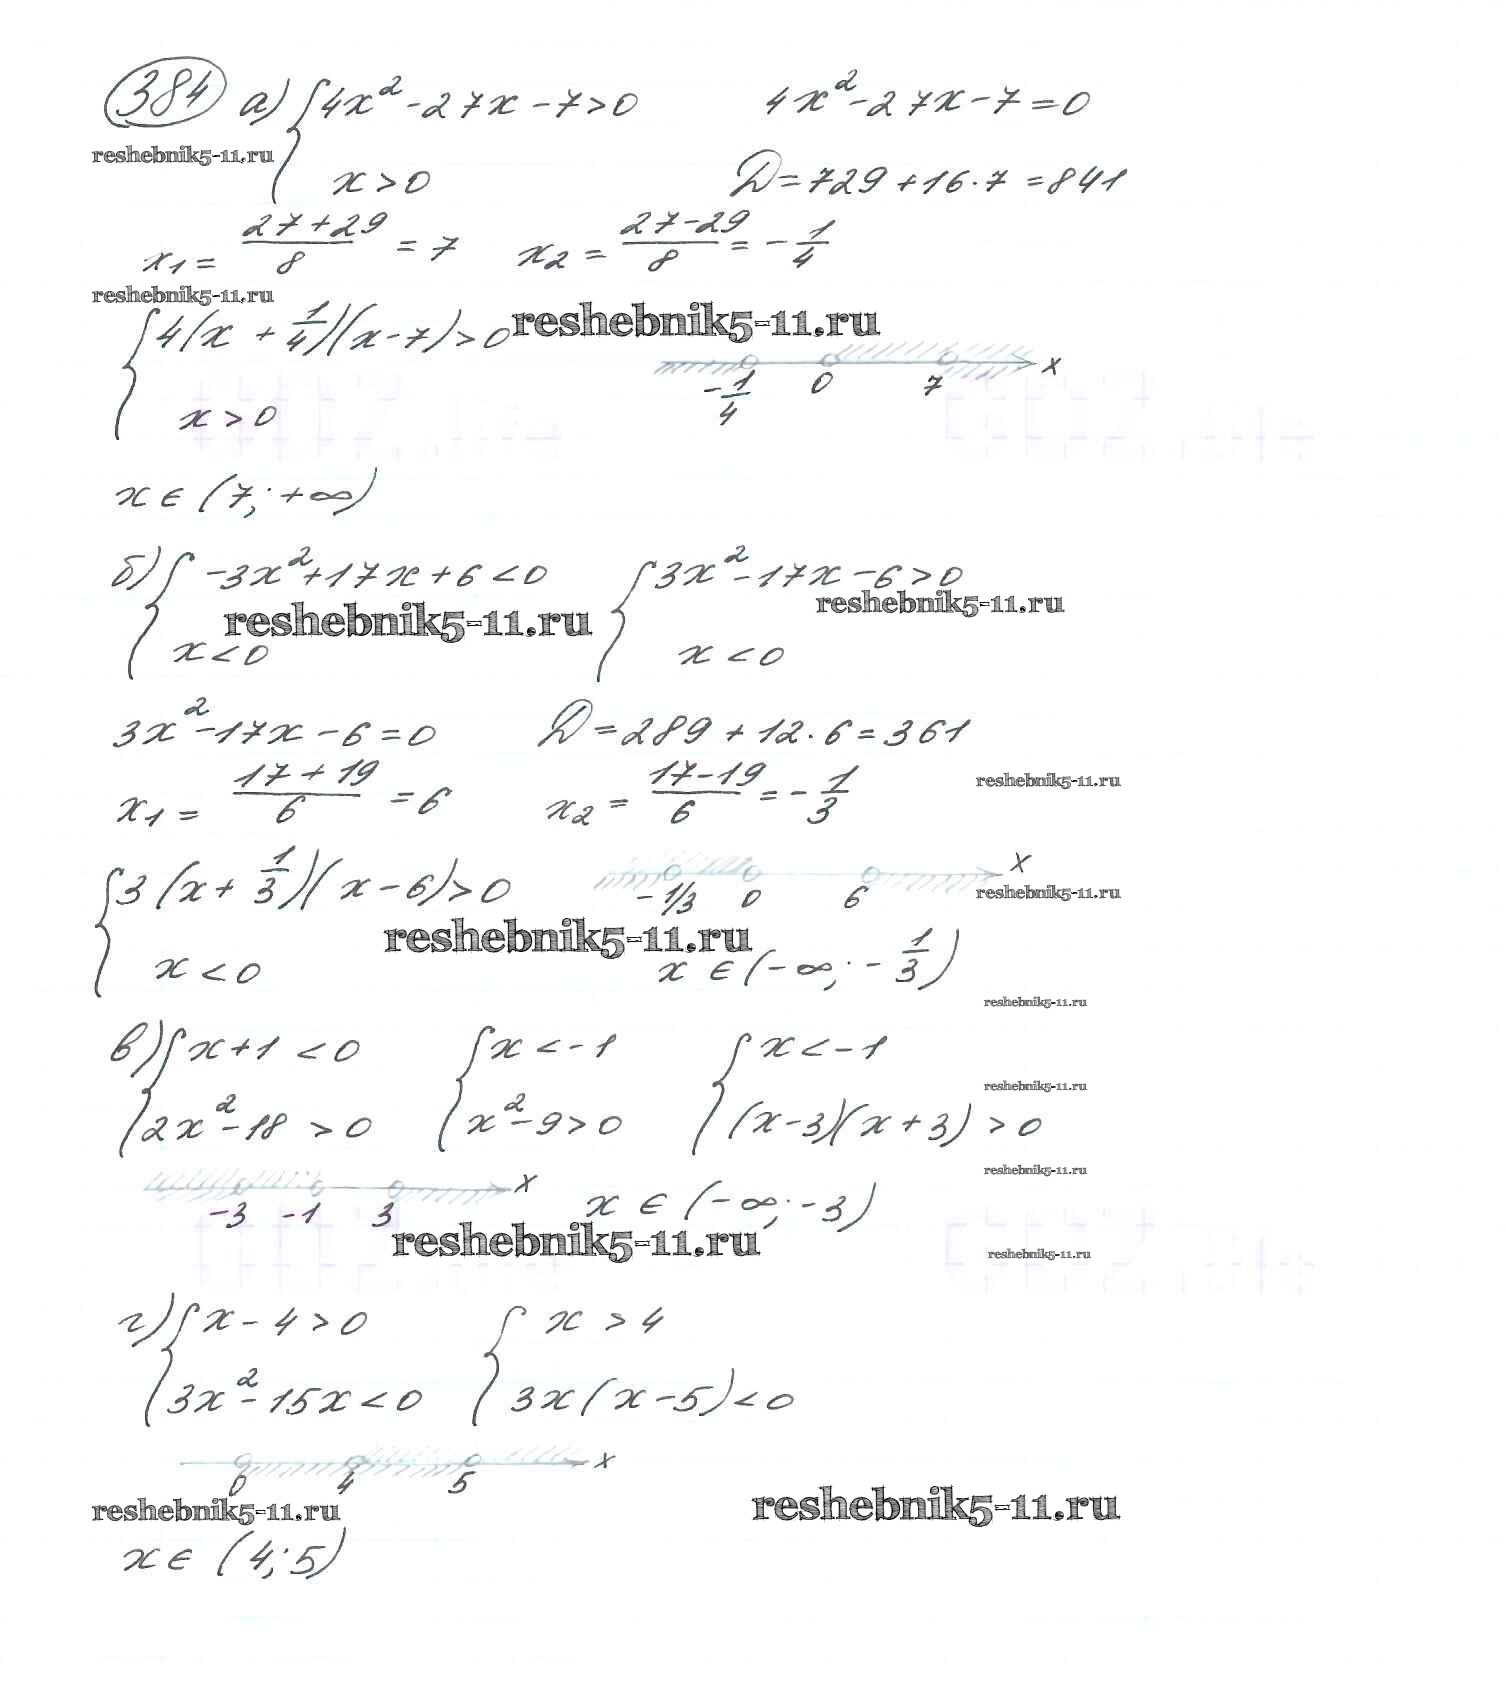 384 а) { 4x² - 27x - 7 > 0    4x² - 27x - 7 = 0
reshebnik5-11.ru
x > 0    D = 729 + 16·7 = 841
x₁ = (27 + 29)/8 = 7    x₂ = (27 - 29)/8 = -1/4
reshebnik5-11.ru
{ 4(x + 1/4)(x - 7) > 0    reshebnik5-11.ru
-1/4  0  7  x
x > 0
x ∈ (7; +∞)
б) { -3x² + 17x + 6 < 0    { 3x² - 17x - 6 > 0
reshebnik5-11.ru    reshebnik5-11.ru
x < 0    x < 0
3x² - 17x - 6 = 0    D = 289 + 12·6 = 361
x₁ = (17 + 19)/6 = 6    x₂ = (17 - 19)/6 = -1/3    reshebnik5-11.ru
{ 3(x + 1/3)(x - 6) > 0    -1/3  0  6  x    reshebnik5-11.ru
reshebnik5-11.ru
x < 0    x ∈ (-∞; -1/3)
reshebnik5-11.ru
в) { x + 1 < 0    { x < -1    { x < -1
reshebnik5-11.ru
2x² - 18 > 0    x² - 9 > 0    (x - 3)(x + 3) > 0
reshebnik5-11.ru
-3  -1  3  x    x ∈ (-∞; -3)
reshebnik5-11.ru    reshebnik5-11.ru
г) { x - 4 > 0    { x > 4
3x² - 15x < 0    3x(x - 5) < 0
0  4  5  x
reshebnik5-11.ru    reshebnik5-11.ru
x ∈ (4; 5)